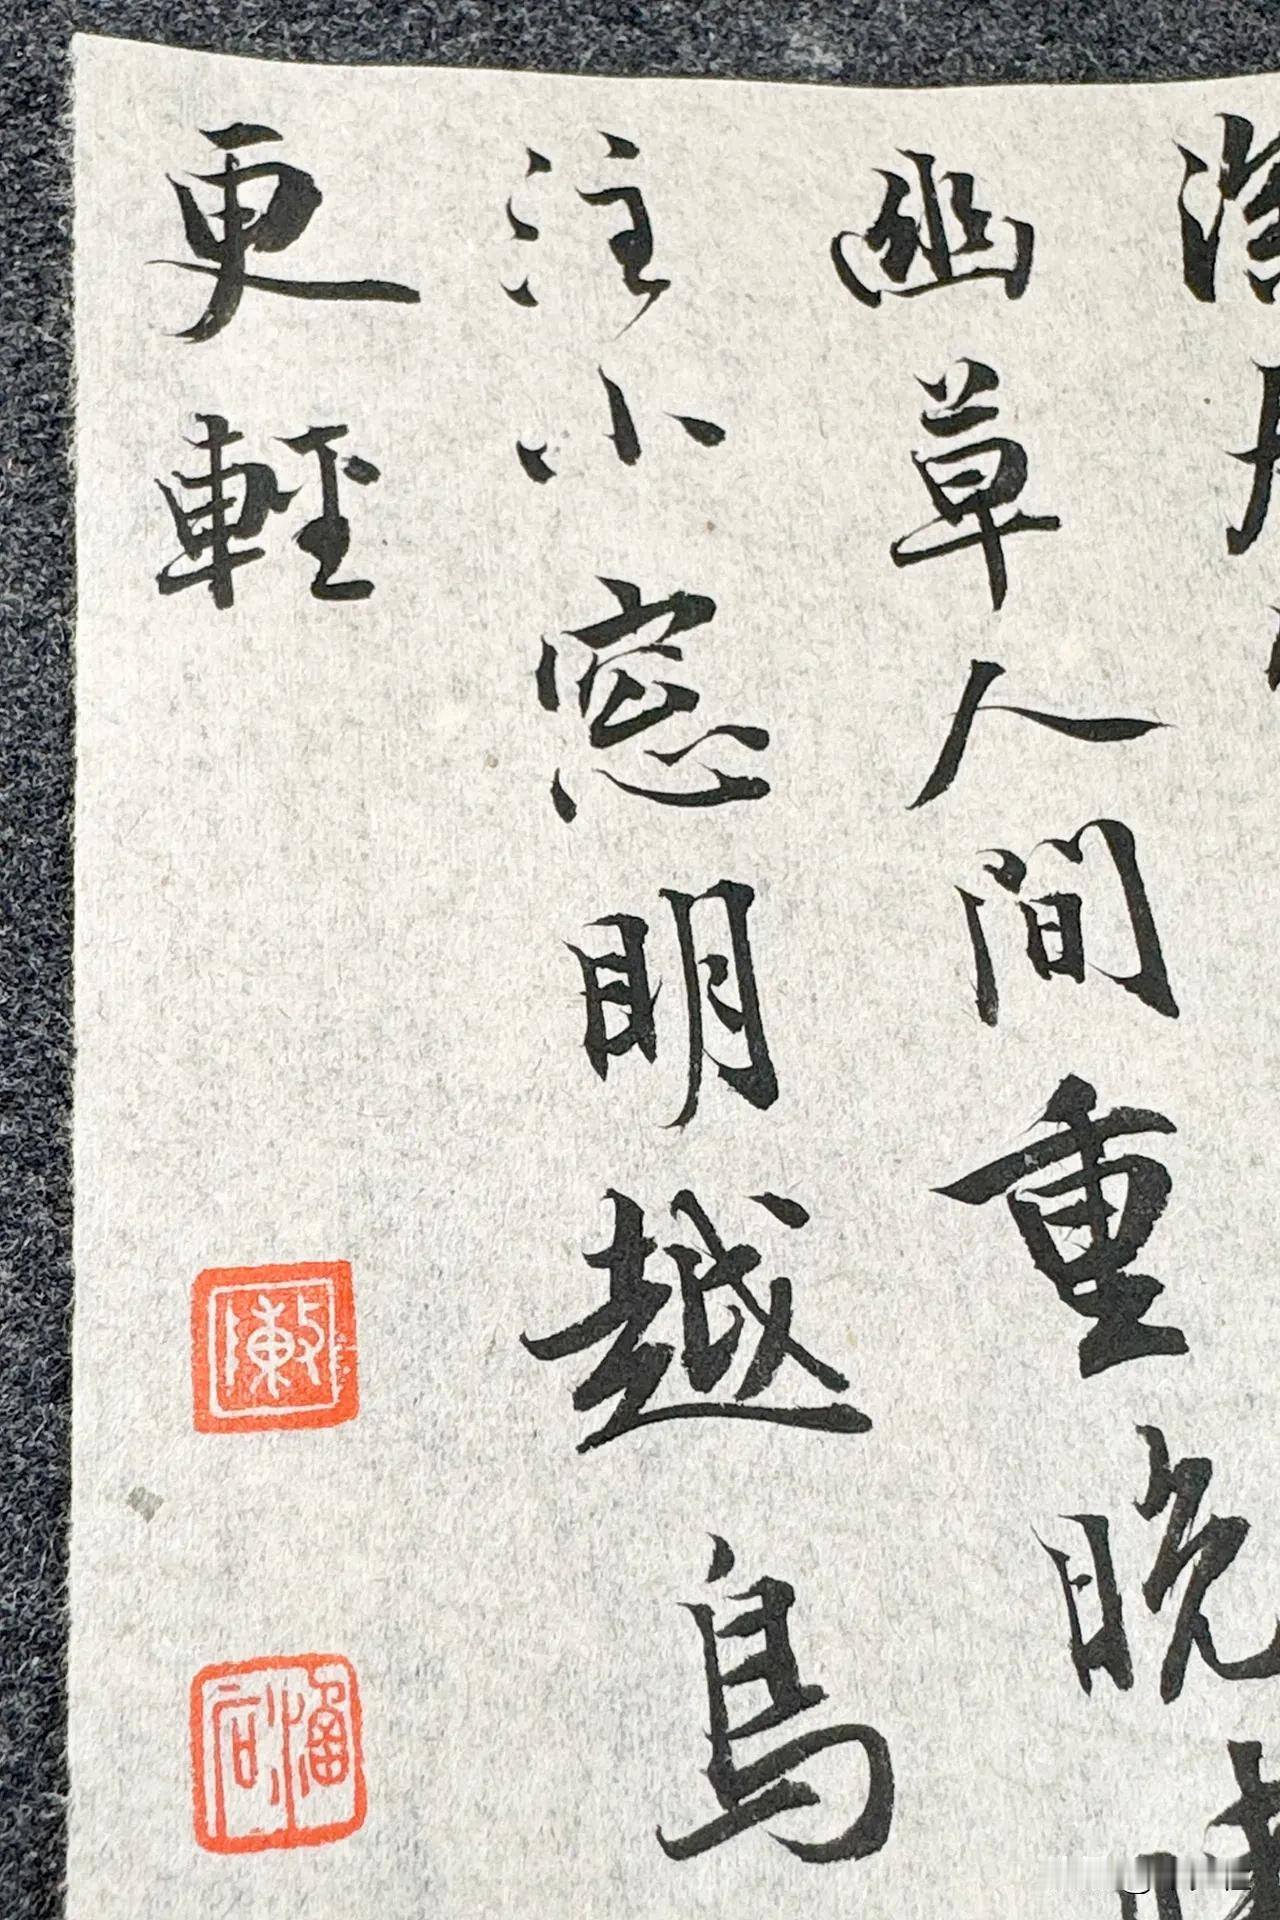 幽草人間重晚
注小窓明越鳥
更輕
敶